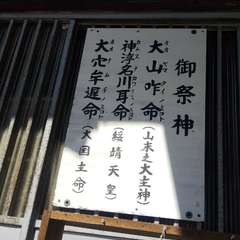 御祭神
大山咋命(山末之大主神)
神渟名川耳命(綏靖天皇)
大穴牟遅命(大国主命)